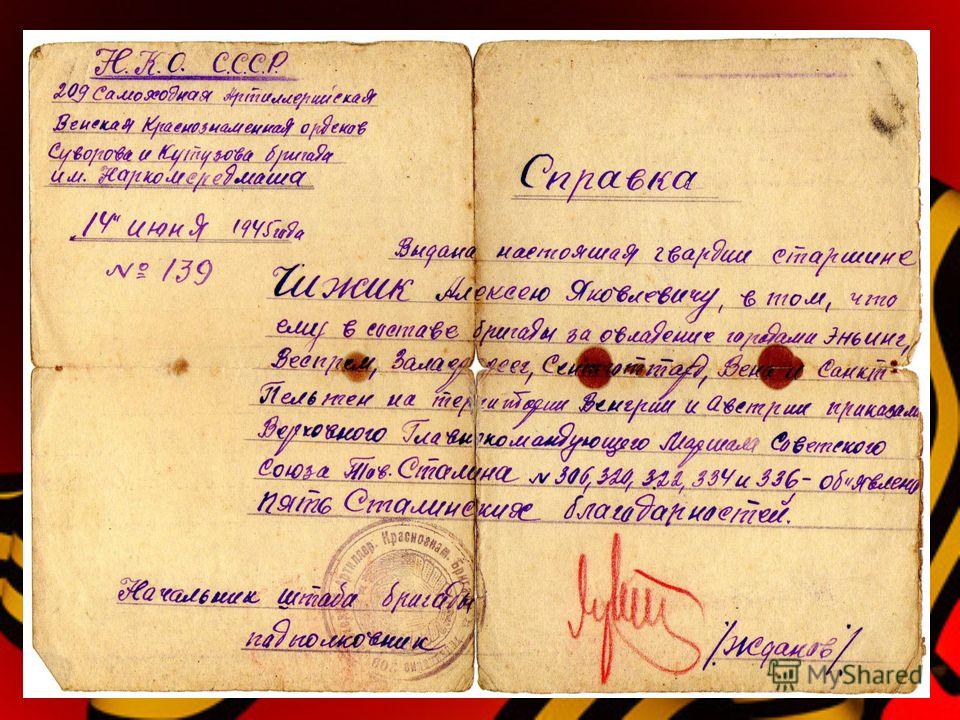 Н.К.О. С.С.С.Р.
209 Самоходная Артиллерийская
Венская Краснознаменная орденов
Суворова и Кутузова бригада
им. Наркомсредмаша
14го июня 1945 года
№ 139
Справка
Выдана настоящая гвардии старшине
Чижик Алексею Яковлевичу, в том, что
ему в составе бригады за овладение городами Эньинг,
Веспрем, Сентготтард, Вена и Санкт
Пельтен на территории Венгрии и Австрии приказами
Верховного Главнокомандующего Маршала Советского
Союза Тов. Сталина N 306, 320, 322, 334 и 336 - объявлено
пять Сталинских благодарностей.
Начальник штаба бригады
подполковник
/Жданов/
Артиллер. Краснознам. Бриг
209
MyShared